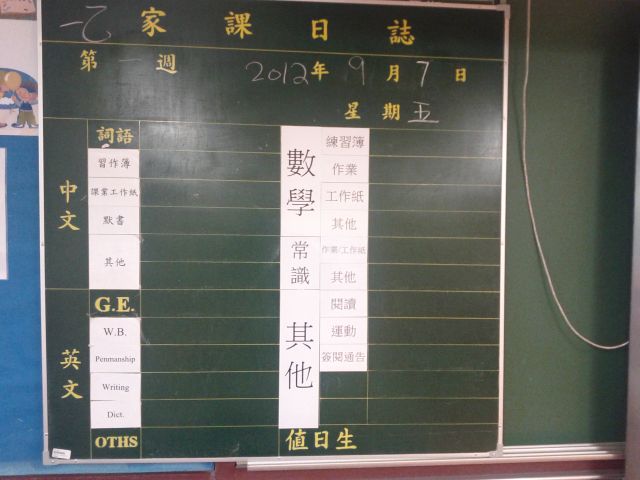 一乙 家課日誌
第一週 2012年9月7日
星期五
中文
詞語
習作簿
課業工作紙
默書
其他
英文
G.E.
W.B.
Penmanship
Writing
Dict.
OTHS
數學
練習簿
作業
工作紙
其他
常識
作業/工作紙
其他
其他
閱讀
運動
簽閱通告
值日生